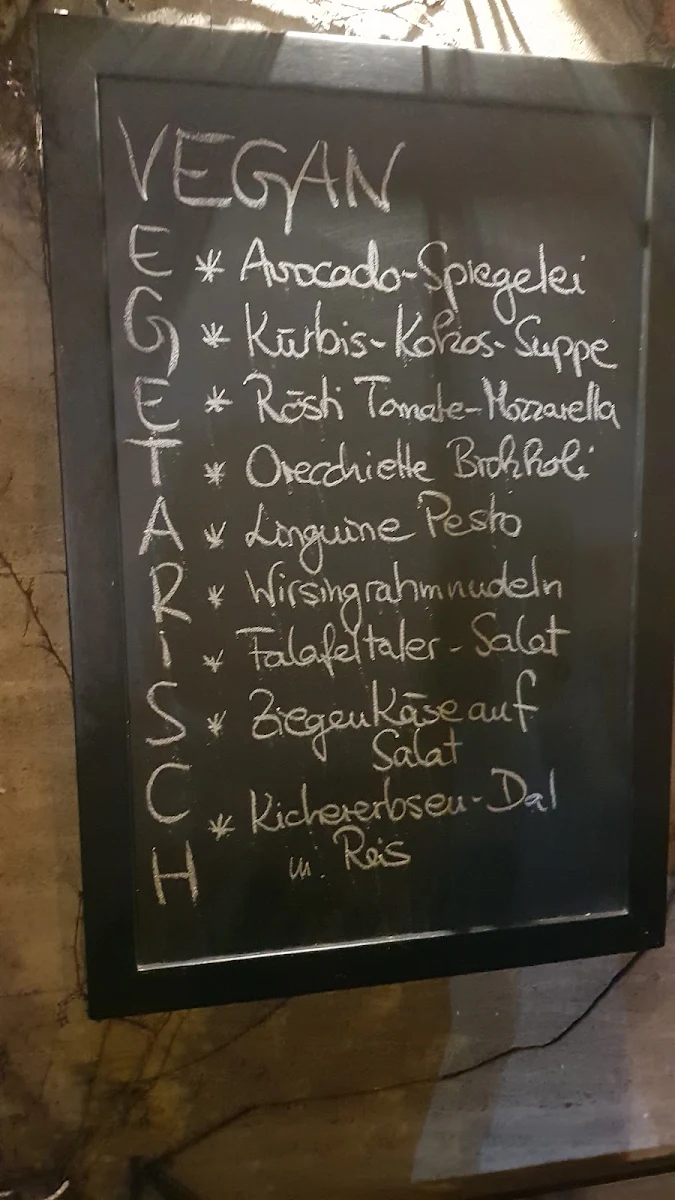 VEGAN
VEGETARISCH
* Avocado-Spiegelei
* Kürbis-Kokos-Suppe
* Rösti Tomate-Mozzarella
* Orecchiette Brokkoli
* Linguine Pesto
* Wirsingrahmnudeln
* Falafeltaler-Salat
* Ziegenkäse auf
Salat
* Kichererbsen-Dal
m. Reis